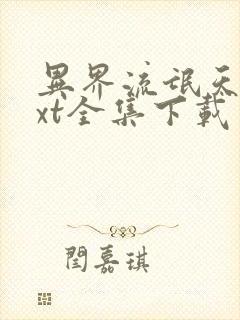 異界流氓天
xt全集下載
閆嘉琪